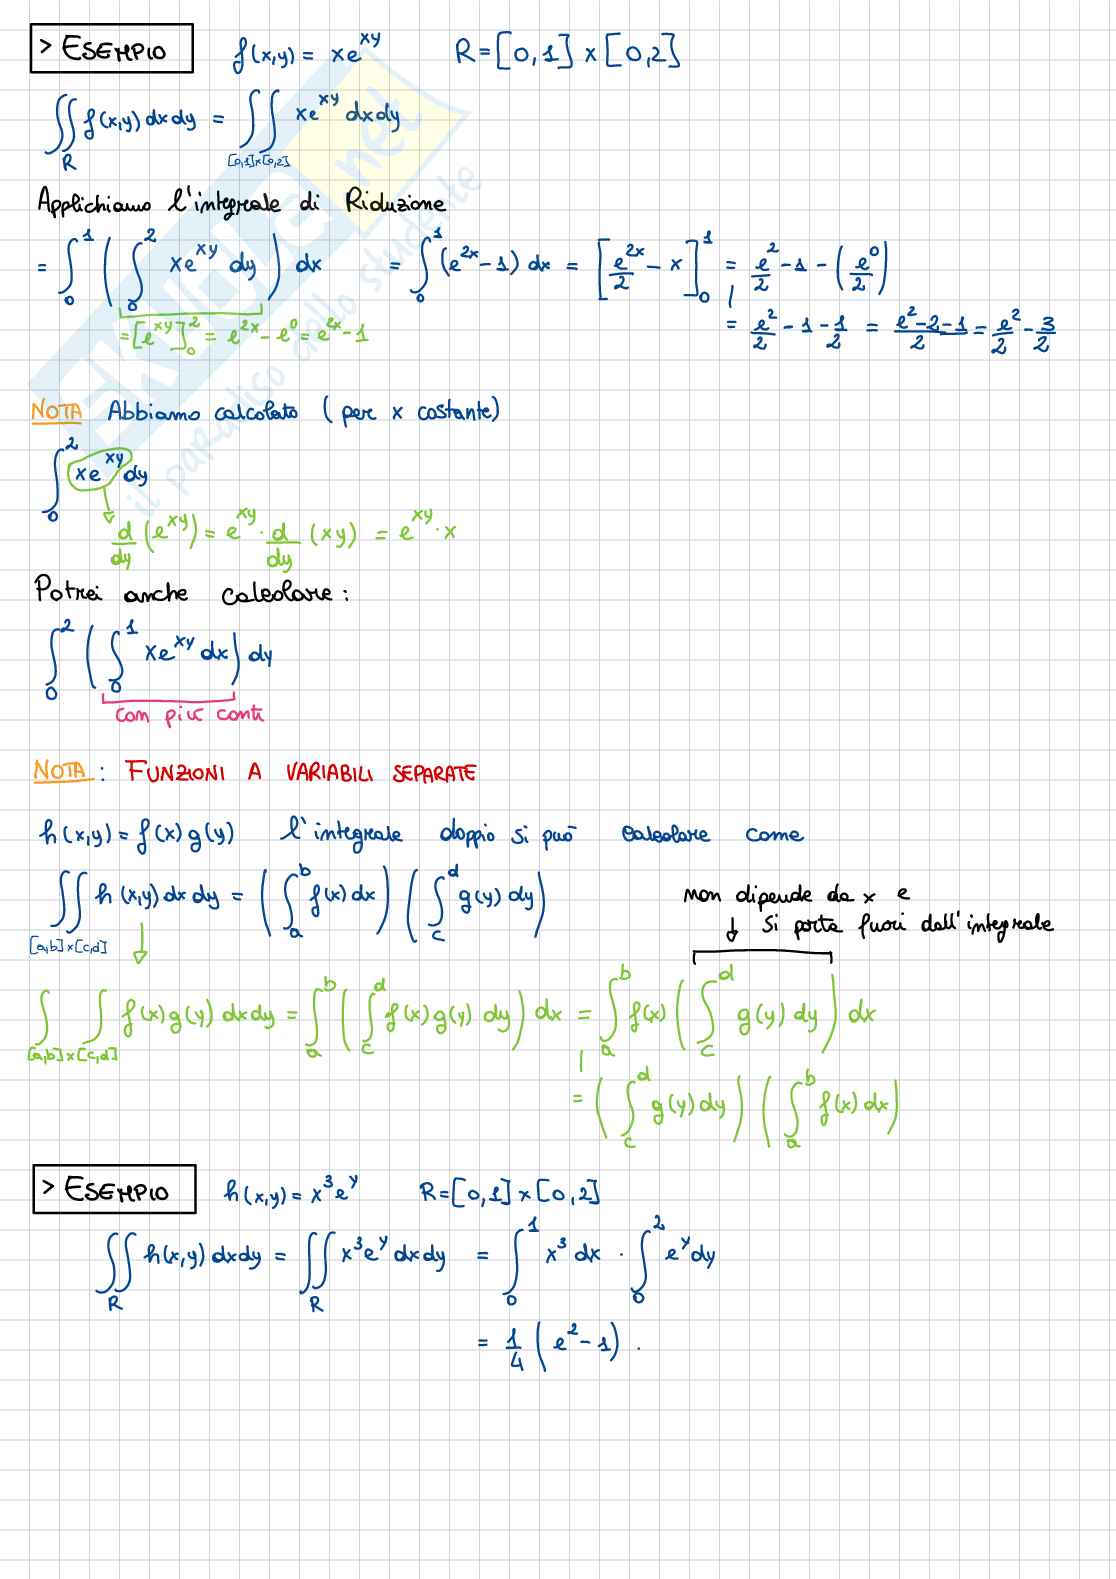 > ESEMPIO f(x,y) = xe^xy R=[0,1]×[0,2]
∬_R f(x,y) dx dy = ∬_[0,1]×[0,2] xe^xy dx dy
Applichiamo l'integrale di Riduzione
= ∫_0^1 ( ∫_0^2 xe^xy dy ) dx = ∫_0^1 (e^2x - 1) dx = [e^2x/2 - x]_0^1 = e^2/2 - 1 - (e^0/2)
= [e^xy]_0^2 = e^2x - e^0 = e^2x - 1
= e^2/2 - 1 - 1/2 = e^2-2-1/2 = e^2/2 - 3/2
NOTA Abbiamo calcolato (per x costante)
∫_0^2 xe^xy dy
d/dy (e^xy) = e^xy · d/dy (xy) = e^xy · x
Potrei anche calcolare:
∫_0^2 ( ∫_0^1 xe^xy dx ) dy
con più conti
NOTA: FUNZIONI A VARIABILI SEPARATE
h(x,y) = f(x) g(y) l'integrale doppio si può calcolare come
∬_[a,b]×[c,d] h(x,y) dx dy = ( ∫_a^b f(x) dx ) ( ∫_c^d g(y) dy )
non dipende da x e
si porta fuori dall'integrale
∫∫_[a,b]×[c,d] f(x) g(y) dx dy = ∫_a^b ( ∫_c^d f(x) g(y) dy ) dx = ∫_a^b f(x) ( ∫_c^d g(y) dy ) dx
= ( ∫_c^d g(y) dy ) ( ∫_a^b f(x) dx )
> ESEMPIO h(x,y) = x^3 e^y R=[0,1]×[0,2]
∬_R h(x,y) dx dy = ∬_R x^3 e^y dx dy = ∫_0^1 x^3 dx · ∫_0^2 e^y dy
= 1/4 (e^2 - 1) .
skuola.net
il paradiso dello studente